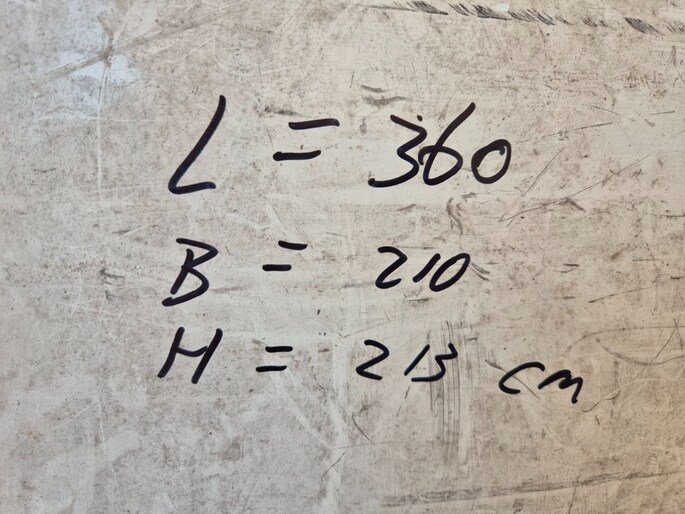 L = 360
B = 210
H = 213 cm